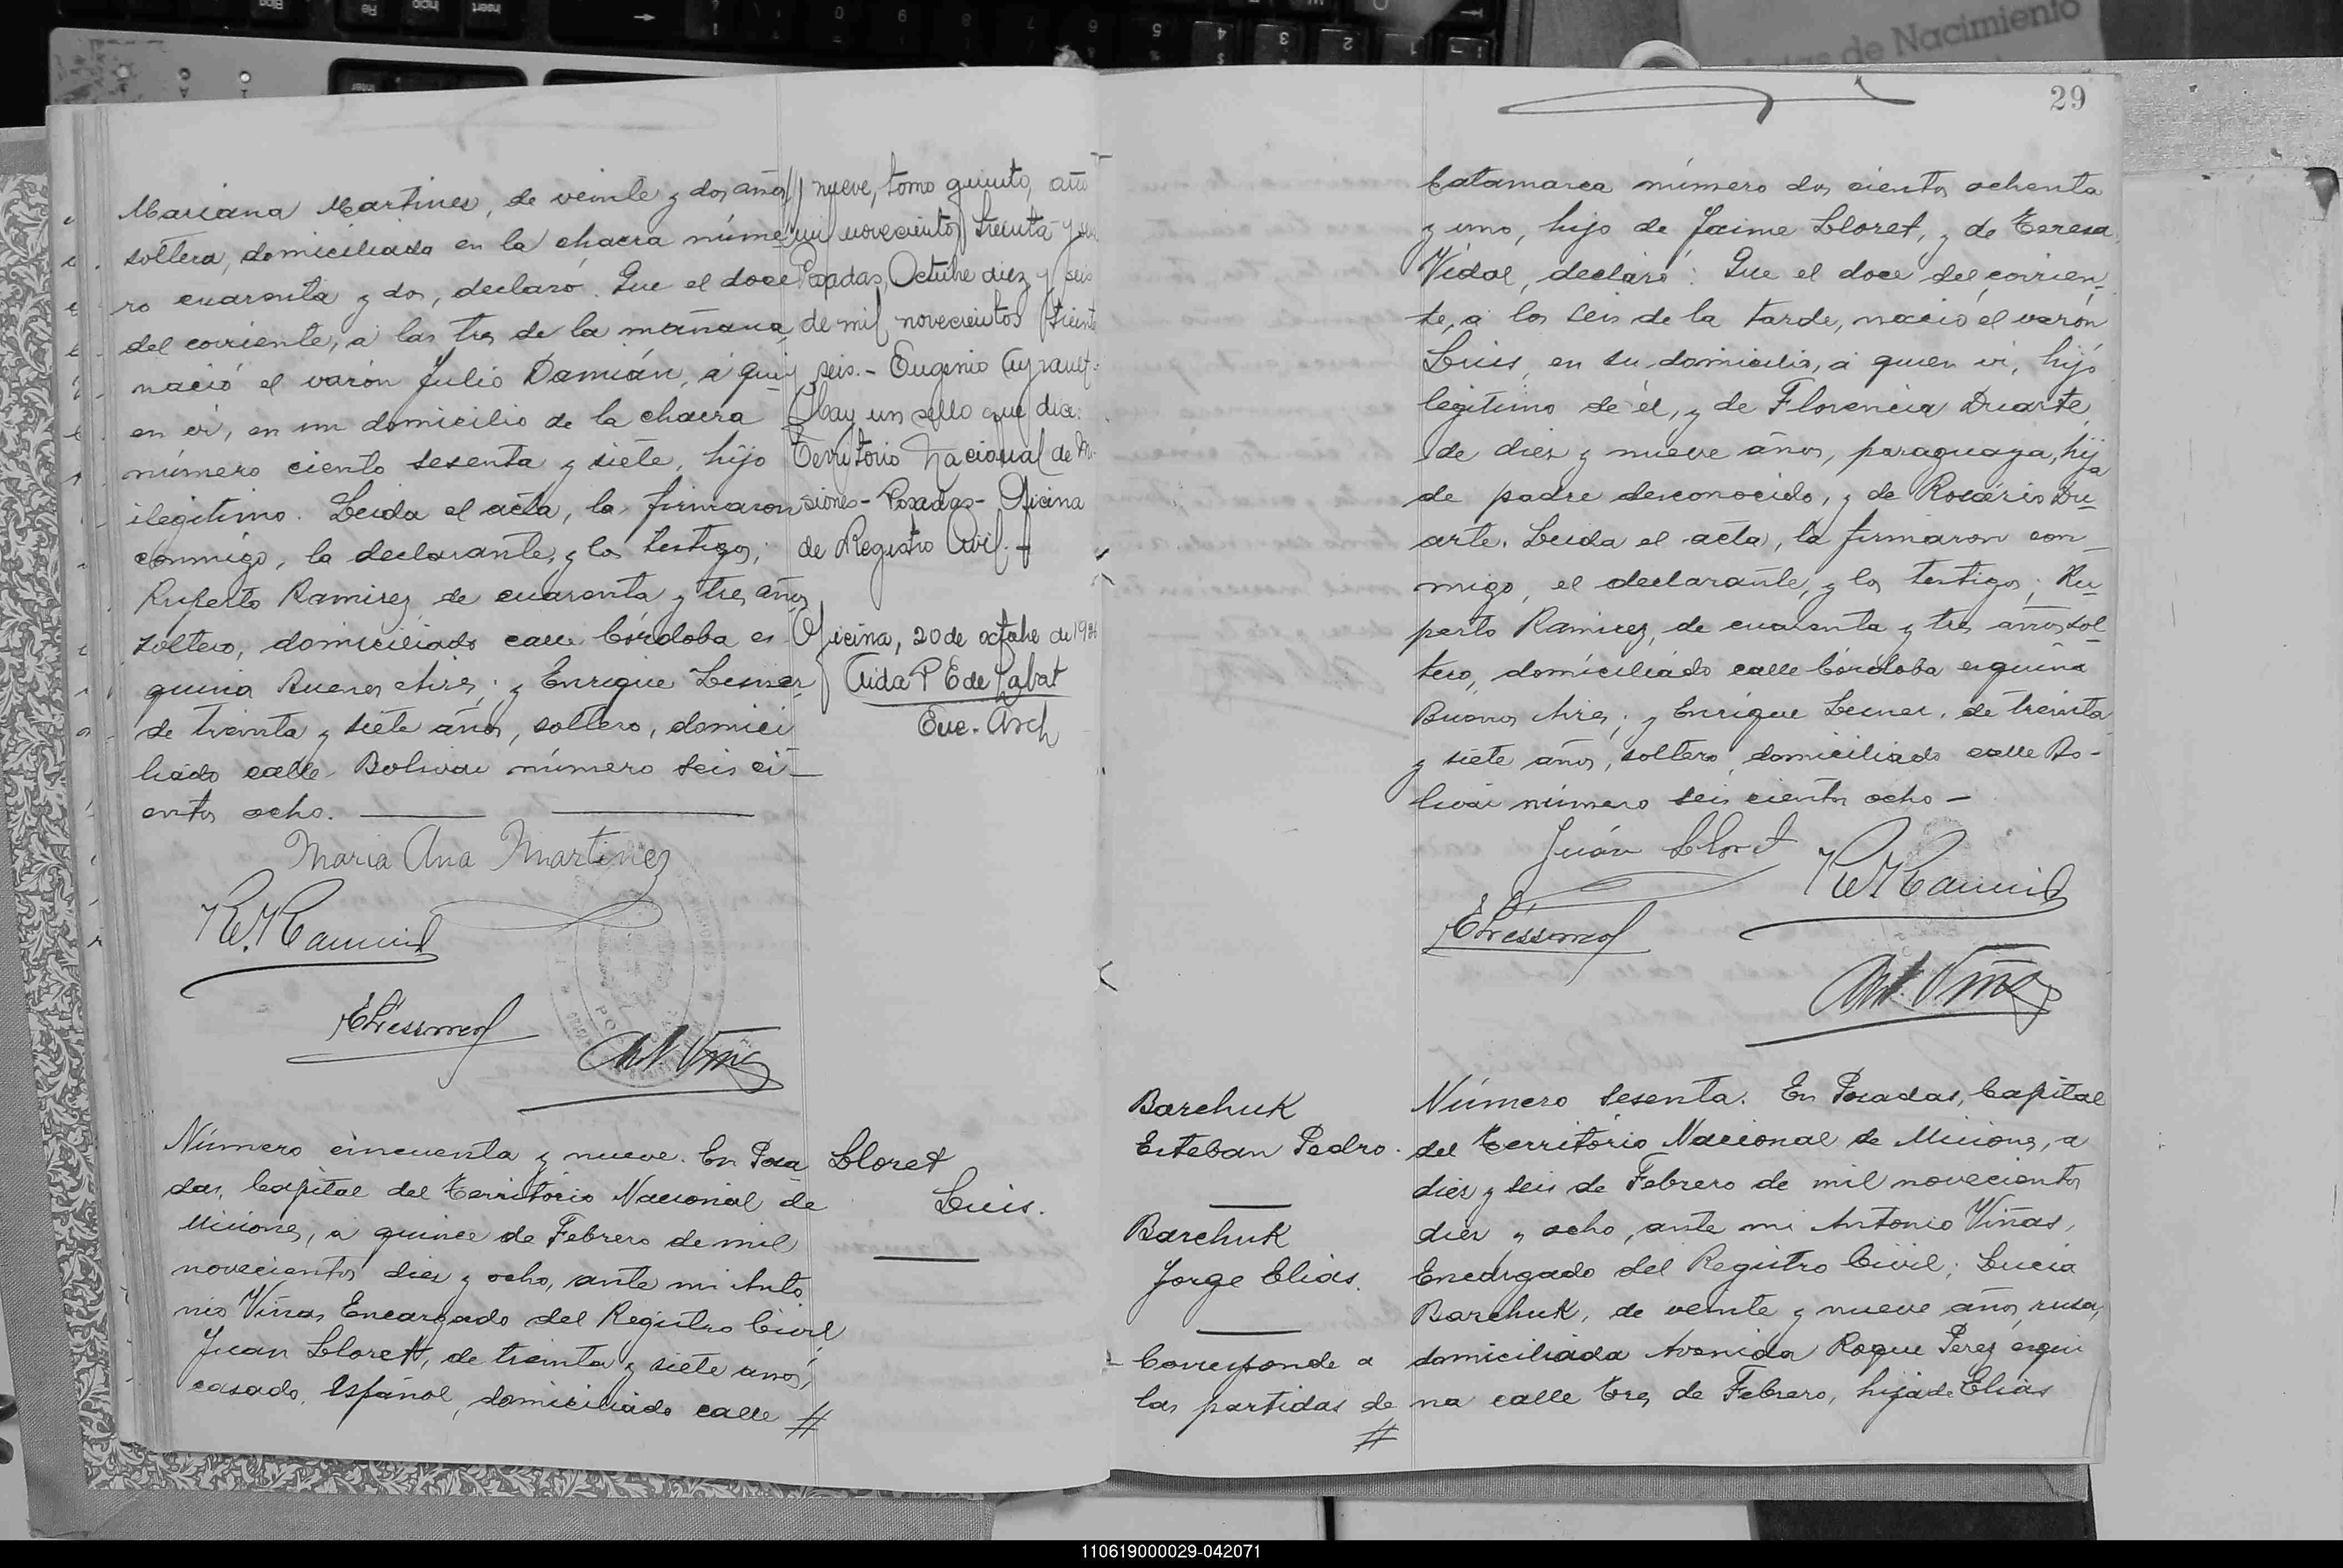 Mariana Martines, de veinte y dos años
soltera, domiciliada en la chacra núme
ro cuarenta y dos, declaró. Que el doce
del corriente, a las tres de la mañana,
nació el varón Julio Damián, a qui
en ví, en un domicilio de la chacra
número ciento sesenta y siete, hijo
ilegitimo. Leida el acta, la firmaron
conmigo, la declarante, y los testigos;
Ruperto Ramirez de cuarenta y tres años
soltero, domiciliado calle Córdoba es
quina Buenos Aires; y Enrique
de treinta y siete años, soltero, domici
liado calle Bolivar número seis ci_
entos ocho.
Maria Ana Martinez
y nueve, tomo quinto, año
mil novecientos treinta y
Posadas, Octubre diez y seis
de mil novecientos treinta
y seis.- Eugenio
Hay un sello que dice:
Territorio Nacional de Mi
siones- Posadas- Oficina
de Registro Civil.-
Oficina, 20 de octubre de 1936
Enc. Arch
Número cincuenta y nueve. En Posa
das, Capital del Territorio Nacional de
Misiones, a quince de Febrero de mil
novecientos diez y ocho, ante mi Anto
nio Viñas Encargado del Registro Civil,
Juan Lloret, de treinta y siete años,
casado, Español, domiciliado calle #
Lloret
Luis.
29
Catamarca número dos cientos ochenta
y uno, hijo de Jaime Lloret, y de Teresa
Vidal, declaró: Que el doce del corrien_
te, a las seis de la tarde, nació el varón
Luis, en su domicilio, a quien ví, hijo
legitimo de él, y de Florencia Duarte,
de diez y nueve años, paraguaya, hija
de padre desconocido, y de Rosario Du_
arte. Leida el acta, la firmaron con_
migo, el declarante, y los testigos; Ru_
perto Ramirez, de cuarenta y tres años sol_
tero, domiciliado calle Córdoba esquina
Buenos Aires; y Enrique de treinta
y siete años, soltero, domiciliado calle Bo-
livar número seis cientos ocho -
Juán Lloret
Barchuk
Esteban Pedro.
Barchuk
Jorge Elias.
Corresponde a
las partidas de
#
Número sesenta. En Posadas, Capital
del Territorio Nacional de Misiones, a
diez y seis de Febrero de mil novecientos
diez y ocho, ante mi Antonio Viñas,
Encargado del Registro Civil; Lucia
Barchuk, de veinte y nueve años, rusa,
domiciliada Avenida Roque Perez esqui
na calle Tres de Febrero, hija de Elias
110619000029-042071